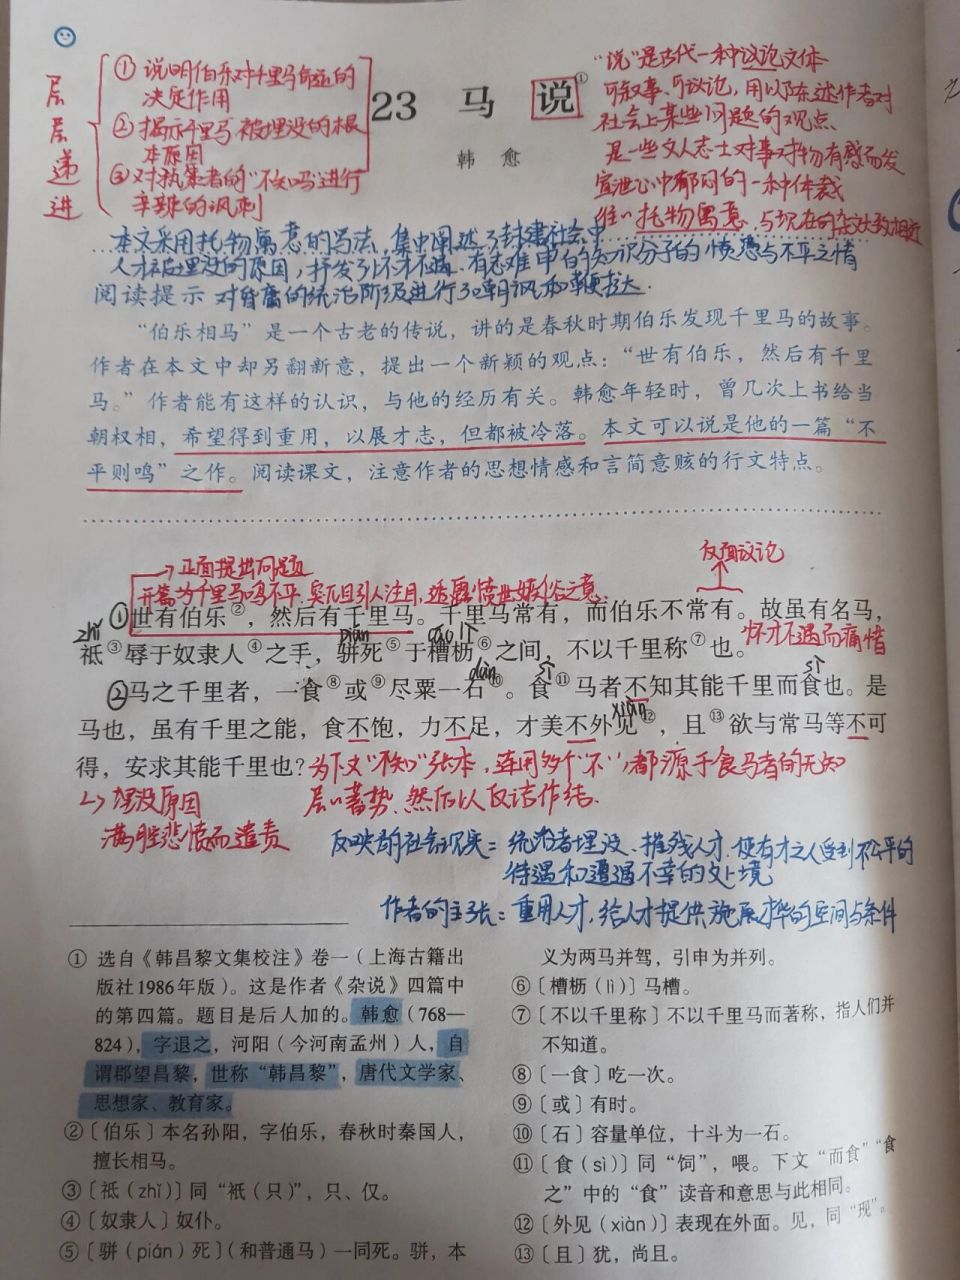 层层递进
① 说明伯乐对千里马命运的
决定作用
② 揭示千里马被埋没的根
本原因
③ 对执策者的“不知马”进行
辛辣的讽刺
23 马 说①
韩 愈
“说”是古代一种议论文体
可叙事、可议论，用以陈述作者对
社会上某些问题的观点
是一些文人志士对事对物有感而发
宣泄心中郁闷的一种体裁
往往托物寓意，与现在的杂文大致相近
本文采用托物寓意的写法，集中阐述了封建社会中
人才被埋没的原因，抒发了怀才不遇、有志难申的知识分子的愤懑与不平之情
阅读提示 对昏庸的统治阶级进行了嘲讽和鞭挞.
“伯乐相马”是一个古老的传说，讲的是春秋时期伯乐发现千里马的故事。
作者在本文中却另翻新意，提出一个新颖的观点：“世有伯乐，然后有千里
马。”作者能有这样的认识，与他的经历有关。韩愈年轻时，曾几次上书给当
朝权相，希望得到重用，以展才志，但都被冷落。本文可以说是他的一篇“不
平则鸣”之作。阅读课文，注意作者的思想情感和言简意赅的行文特点。
正面提出问题
反面议论
开篇为千里马鸣不平，突兀且引人注目，透露愤世嫉俗之意
①世有伯乐②，然后有千里马。千里马常有，而伯乐不常有。故虽有名马，
zhǐ pián cáo lì 怀才不遇而痛惜
祗③辱于奴隶人④之手，骈死⑤于槽枥⑥之间，不以千里称⑦也。
dàn sì sì
②马之千里者，一食⑧或⑨尽粟一石⑩。食⑪马者不知其能千里而食也。是
xiàn
马也，虽有千里之能，食不饱，力不足，才美不外见⑫，且⑬欲与常马等不可
得，安求其能千里也？为下文“不知”张本，连用多个“不”，都源于食马者的无知
埋没原因 层层蓄势、然后以反诘作结.
满腔悲愤而谴责
反映的社会现实：统治者埋没、摧残人才，使有才之人受到不公平的
待遇和遭遇不幸的处境
作者的主张：重用人才，给人才提供施展才华的空间与条件
① 选自《韩昌黎文集校注》卷一（上海古籍出
版社1986年版）。这是作者《杂说》四篇中
的第四篇。题目是后人加的。韩愈（768—
824），字退之，河阳（今河南孟州）人，自
谓郡望昌黎，世称“韩昌黎”，唐代文学家、
思想家、教育家。
②〔伯乐〕本名孙阳，字伯乐，春秋时秦国人，
擅长相马。
③〔祗（zhǐ）〕同“衹（只）”，只、仅。
④〔奴隶人〕奴仆。
⑤〔骈（pián）死〕（和普通马）一同死。骈，本
义为两马并驾，引申为并列。
⑥〔槽枥（lì）〕马槽。
⑦〔不以千里称〕不以千里马而著称，指人们并
不知道。
⑧〔一食〕吃一次。
⑨〔或〕有时。
⑩〔石〕容量单位，十斗为一石。
⑪〔食（sì）〕同“饲”，喂。下文“而食”“食
之”中的“食”读音和意思与此相同。
⑫〔外见（xiàn）〕表现在外面。见，同“现”。
⑬〔且〕犹，尚且。